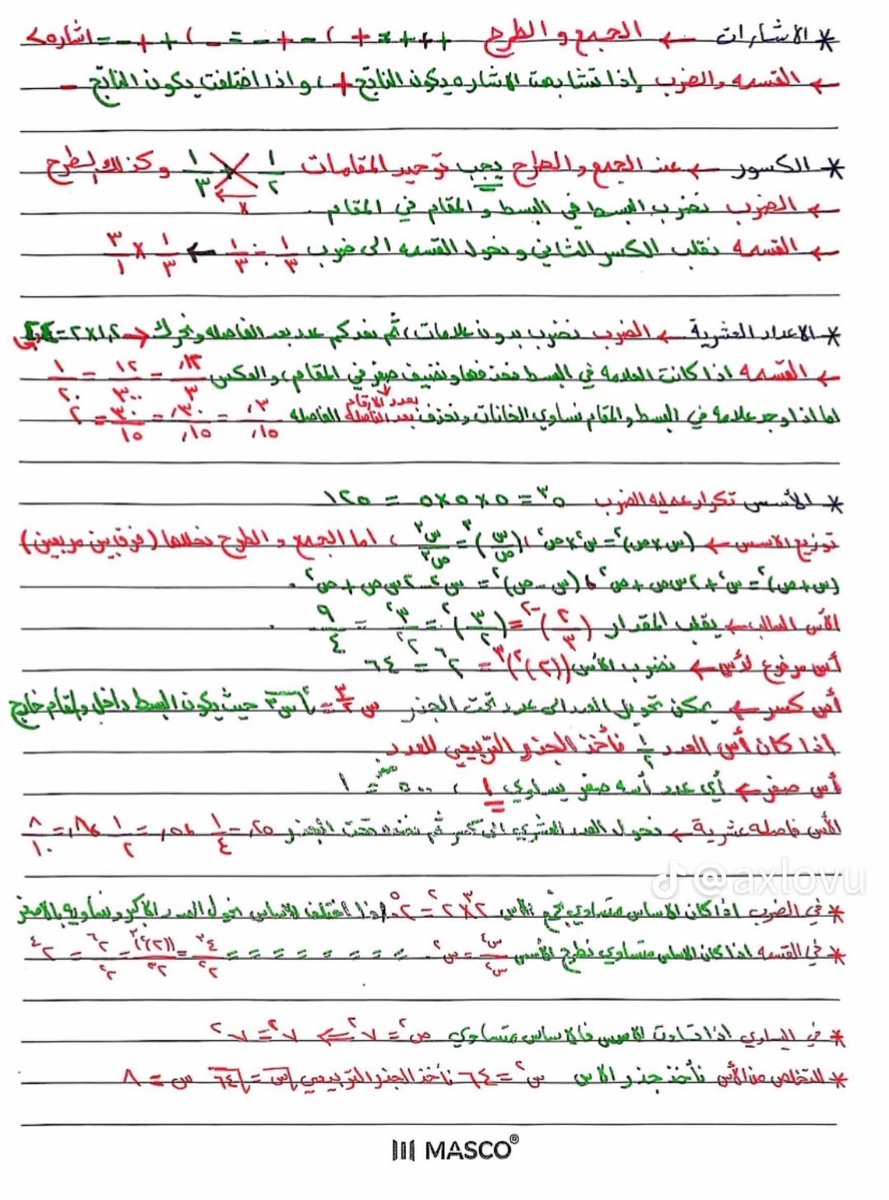 * الاشارات ← الجمع و الطرح + + + = + ، + - + ، - = - - ، + + - = اشاره >
← القسمه والضرب إذا تشابهت الاشاره يكون الناتج + ، و اذا اختلفت يكون الناتج -
* الكسور ← عند الجمع و الطرح يجب توحيد المقامات ١/٢ ١/٣ وكذلك الطرح
← الضرب نضرب البسط في البسط و المقام في المقام .
← القسمه نقلب الكسر الثاني و نحول القسمه الى ضرب ١/٣ ÷ ١/٣ ← ١/٣ × ٣/١
* الاعداد العشرية ← الضرب نضرب بدون علامات ، ثم نعد كم عدد بعد الفاصله ونحرك ← ١,٢×٢=
← القسمه اذا كانت العلامه في البسط نحذفها ونضيف صفر في المقام ، والعكس ,١٢/٣ = ١٢/٣٠٠ = ١/٢٠
اما اذا وجد علامه في البسط والمقام نساوي الخانات ونحذف الفاصله ,٣/,١٥ = ,٣٠/,١٥ = ٣٠/١٥ = ٢
بعدد الارقام
بعد الفاصله
* الأسس تكرار عمليه الضرب ٥³ = ٥×٥×٥ = ١٢٥
توزيع الاسس ← (س×ص)² = س²×ص² ، (س/ص)³ = س³/ص³ ، اما الجمع و الطرح نحللها (فرق بين مربعين)
(س+ص)² = س²+٢س ص+ص² ، (س-ص)² = س²-٢س ص+ص² .
الأس السالب ← يقلب المقدار (٢/٣)⁻² = (٣/٢)² = ٣²/٢² = ٩/٤ .
أس مرفوع لأس ← نضرب الأس ((٢)²)³ = ٢⁶ = ٦٤
أس كسر ← يمكن تحويل العدد الى عدد تحت الجذر س^٣/٢ = √س³ حيث يكون البسط داخل والمقام خارج
اذا كان أس العدد ١/٢ نأخذ الجذر التربيعي للعدد .
أس صفر ← أي عدد أسه صفر يساوي ١ ، ٥٠٠^صفر = ١
الأس فاصله عشرية ← نحول العدد العشري الى كسر ثم نضعه تحت الجذر ,٢٥ = ١/٤ ,٥ = ١/٢ ، ,٨ = ٨/١٠
* في الضرب اذا كان الاساس متساوي نجمع الأس ٢³×٢² = ٢⁵ . اذا اختلف الاساس نحول العدد الأكبر ونساويه بالاصغر
* في القسمه اذا كان الاساس متساوي نطرح الأسس س⁴/س² = س² . = = = = = = = =
* في التساوي اذا تساوت الاسس فالاساس متساوي ص² = ٧² ← ٧² = ٧²
* للتخلص من الأس نأخذ جذر الاس س² = ٦٤ نأخذ الجذر التربيعي √س² = √٦٤ س = ٨
@axlovu
MASCO®